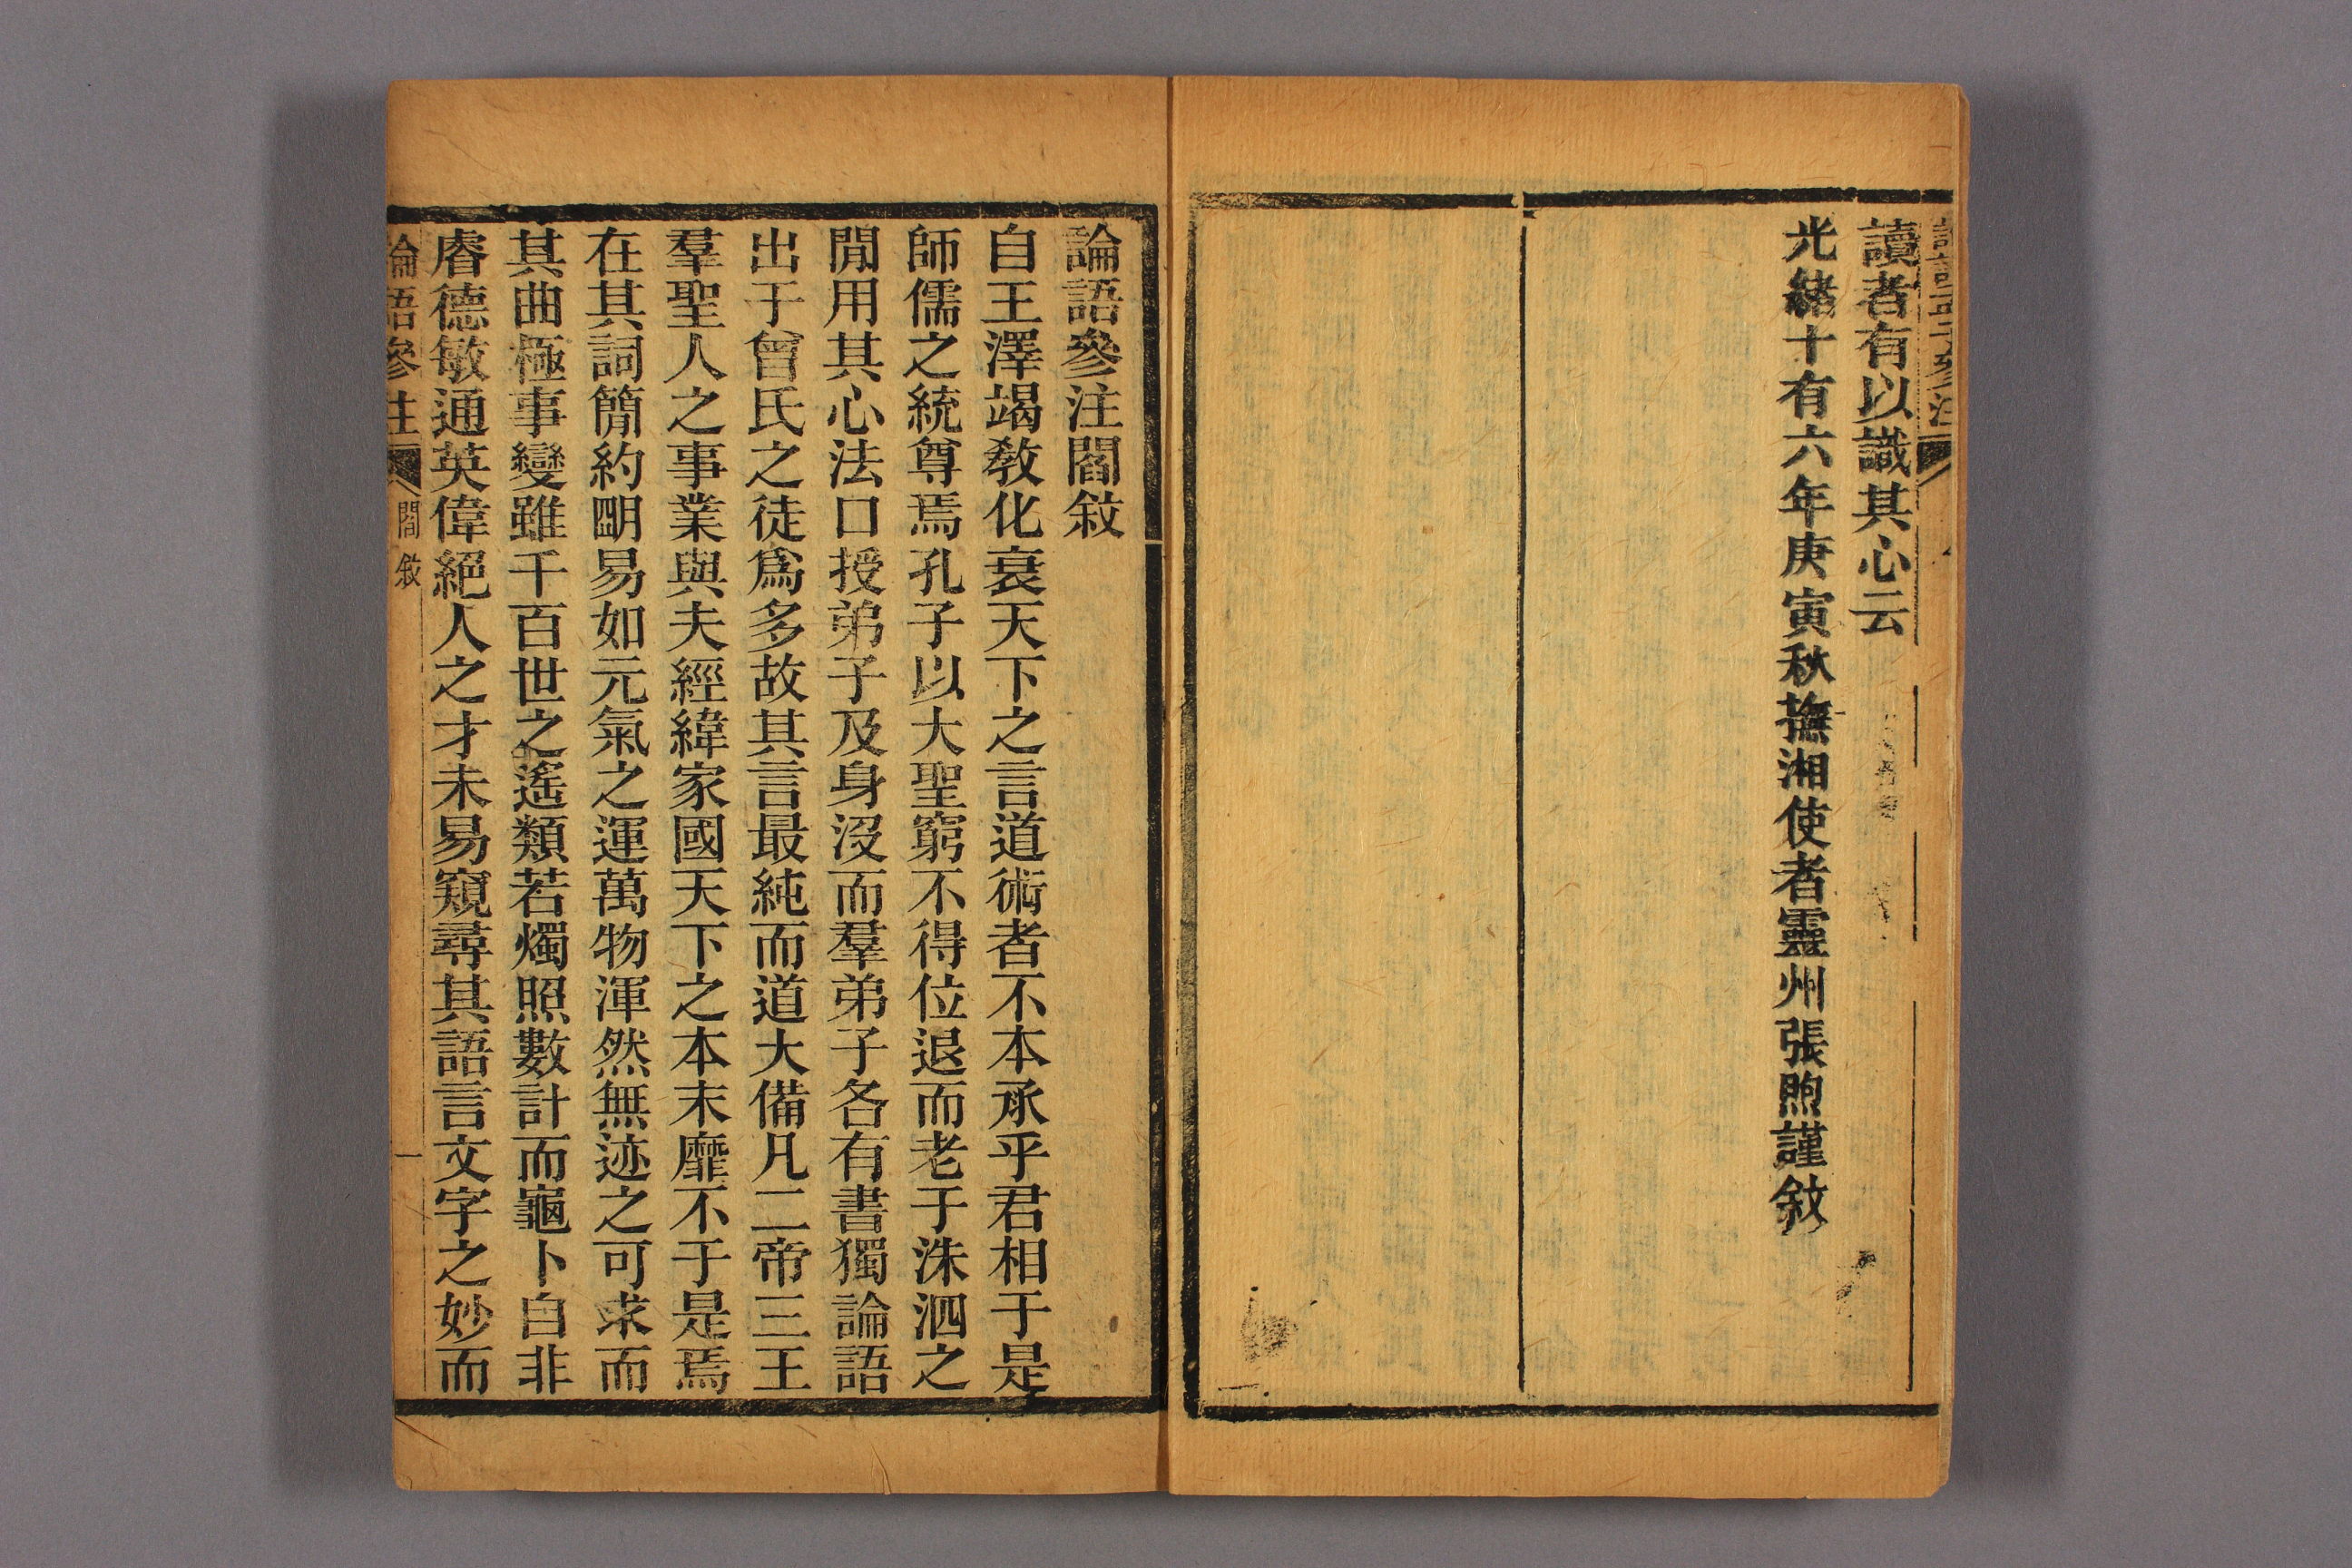 讀者有以識其心云
光緒十有六年庚寅秋撫湘使者靈州張煦謹敘
論語參注閻敘
自王澤竭敎化衰天下之言道術者不本承乎君相于是
師儒之統尊焉孔子以大聖窮不得位退而老于洙泗之
閒用其心法口授弟子及身沒而羣弟子各有書獨論語
出于曾氏之徒爲多故其言最純而道大備凡二帝三王
羣聖人之事業與夫經緯家國天下之本末靡不于是焉
在其詞簡約明易如元氣之運萬物渾然無迹之可求而
其曲極事變雖千百世之遙類若燭照數計而龜卜自非
睿德敏通英偉絕人之才未易窺尋其語言文字之妙而
論語參注
閻敘
一